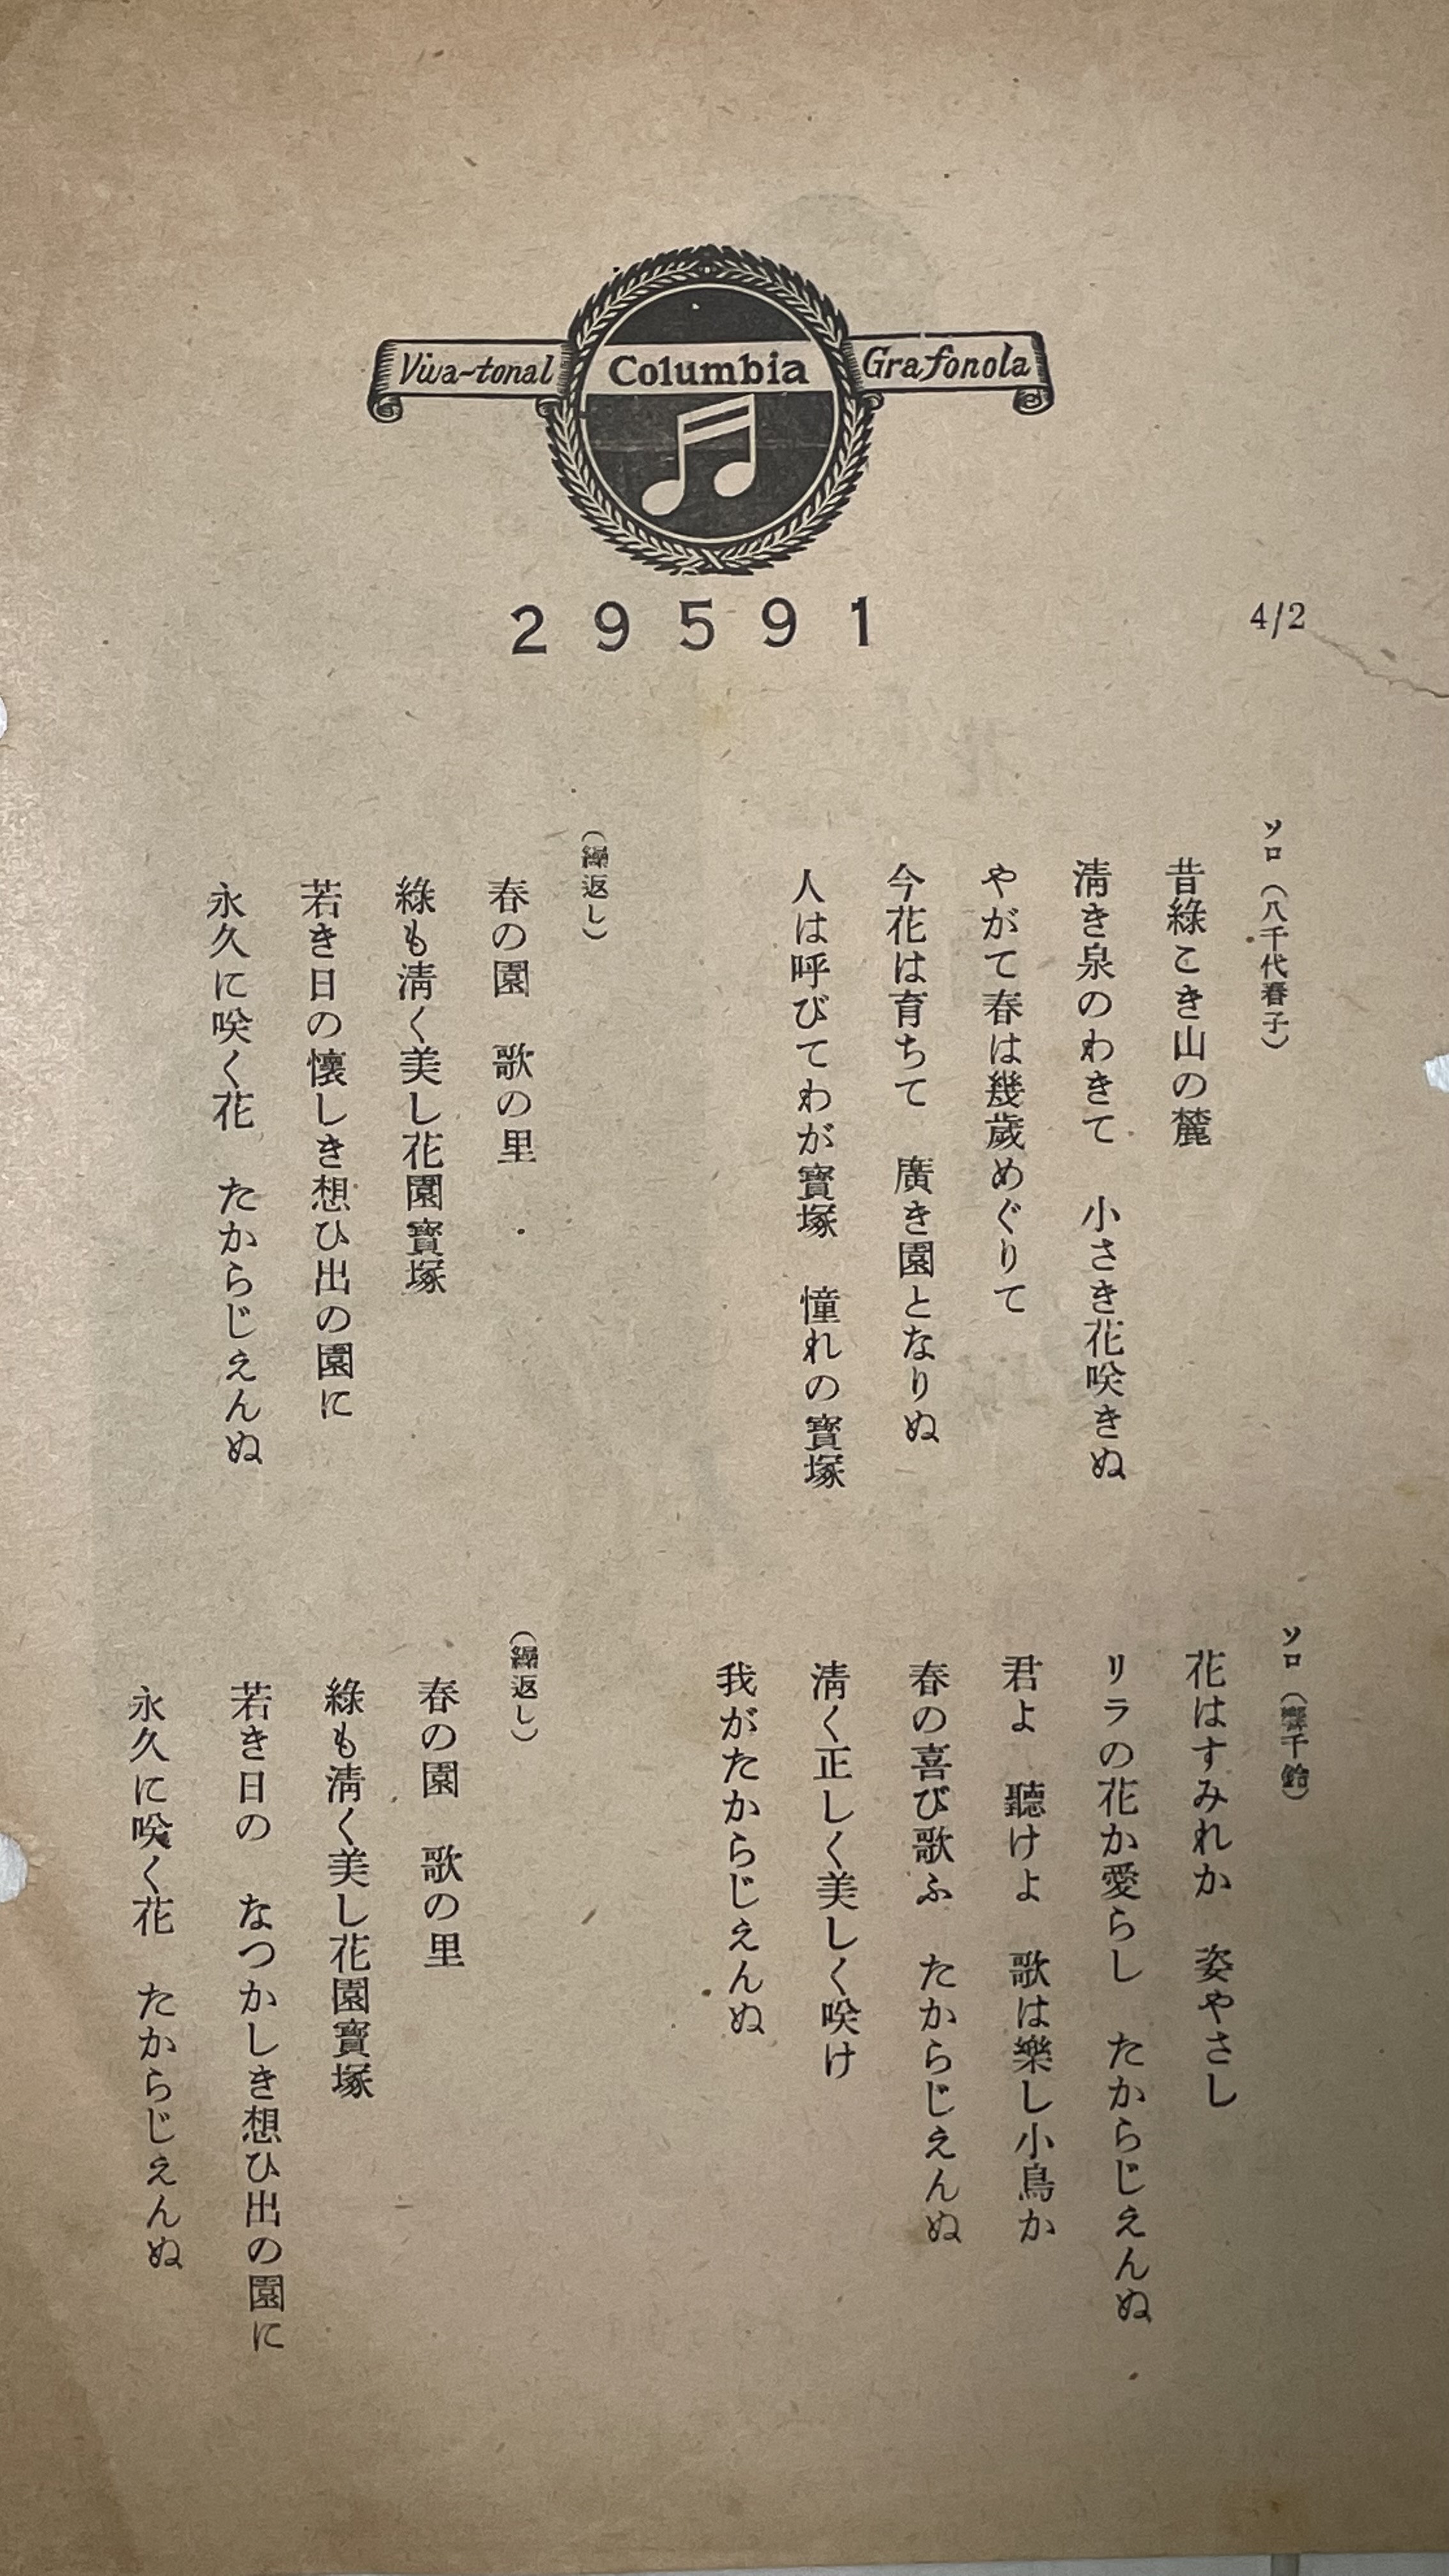 Viva-tonal Columbia Grafonola
29591
4/2
ソロ（八千代春子）
昔綠こき山の麓
淸き泉のわきて　小さき花咲きぬ
やがて春は幾歲めぐりて
今花は育ちて　廣き園となりぬ
人は呼びてわが寶塚　憧れの寶塚
（繰返し）
春の園　歌の里
綠も淸く美し花園寶塚
若き日の懷しき想ひ出の園に
永久に咲く花　たからじえんぬ
ソロ（響千鈴）
花はすみれか　姿やさし
リラの花か愛らし　たからじえんぬ
君よ　聽けよ　歌は樂し小鳥か
春の喜び歌ふ　たからじえんぬ
淸く正しく美しく咲け
我がたからじえんぬ
（繰返し）
春の園　歌の里
綠も淸く美し花園寶塚
若き日の　なつかしき想ひ出の園に
永久に咲く花　たからじえんぬ